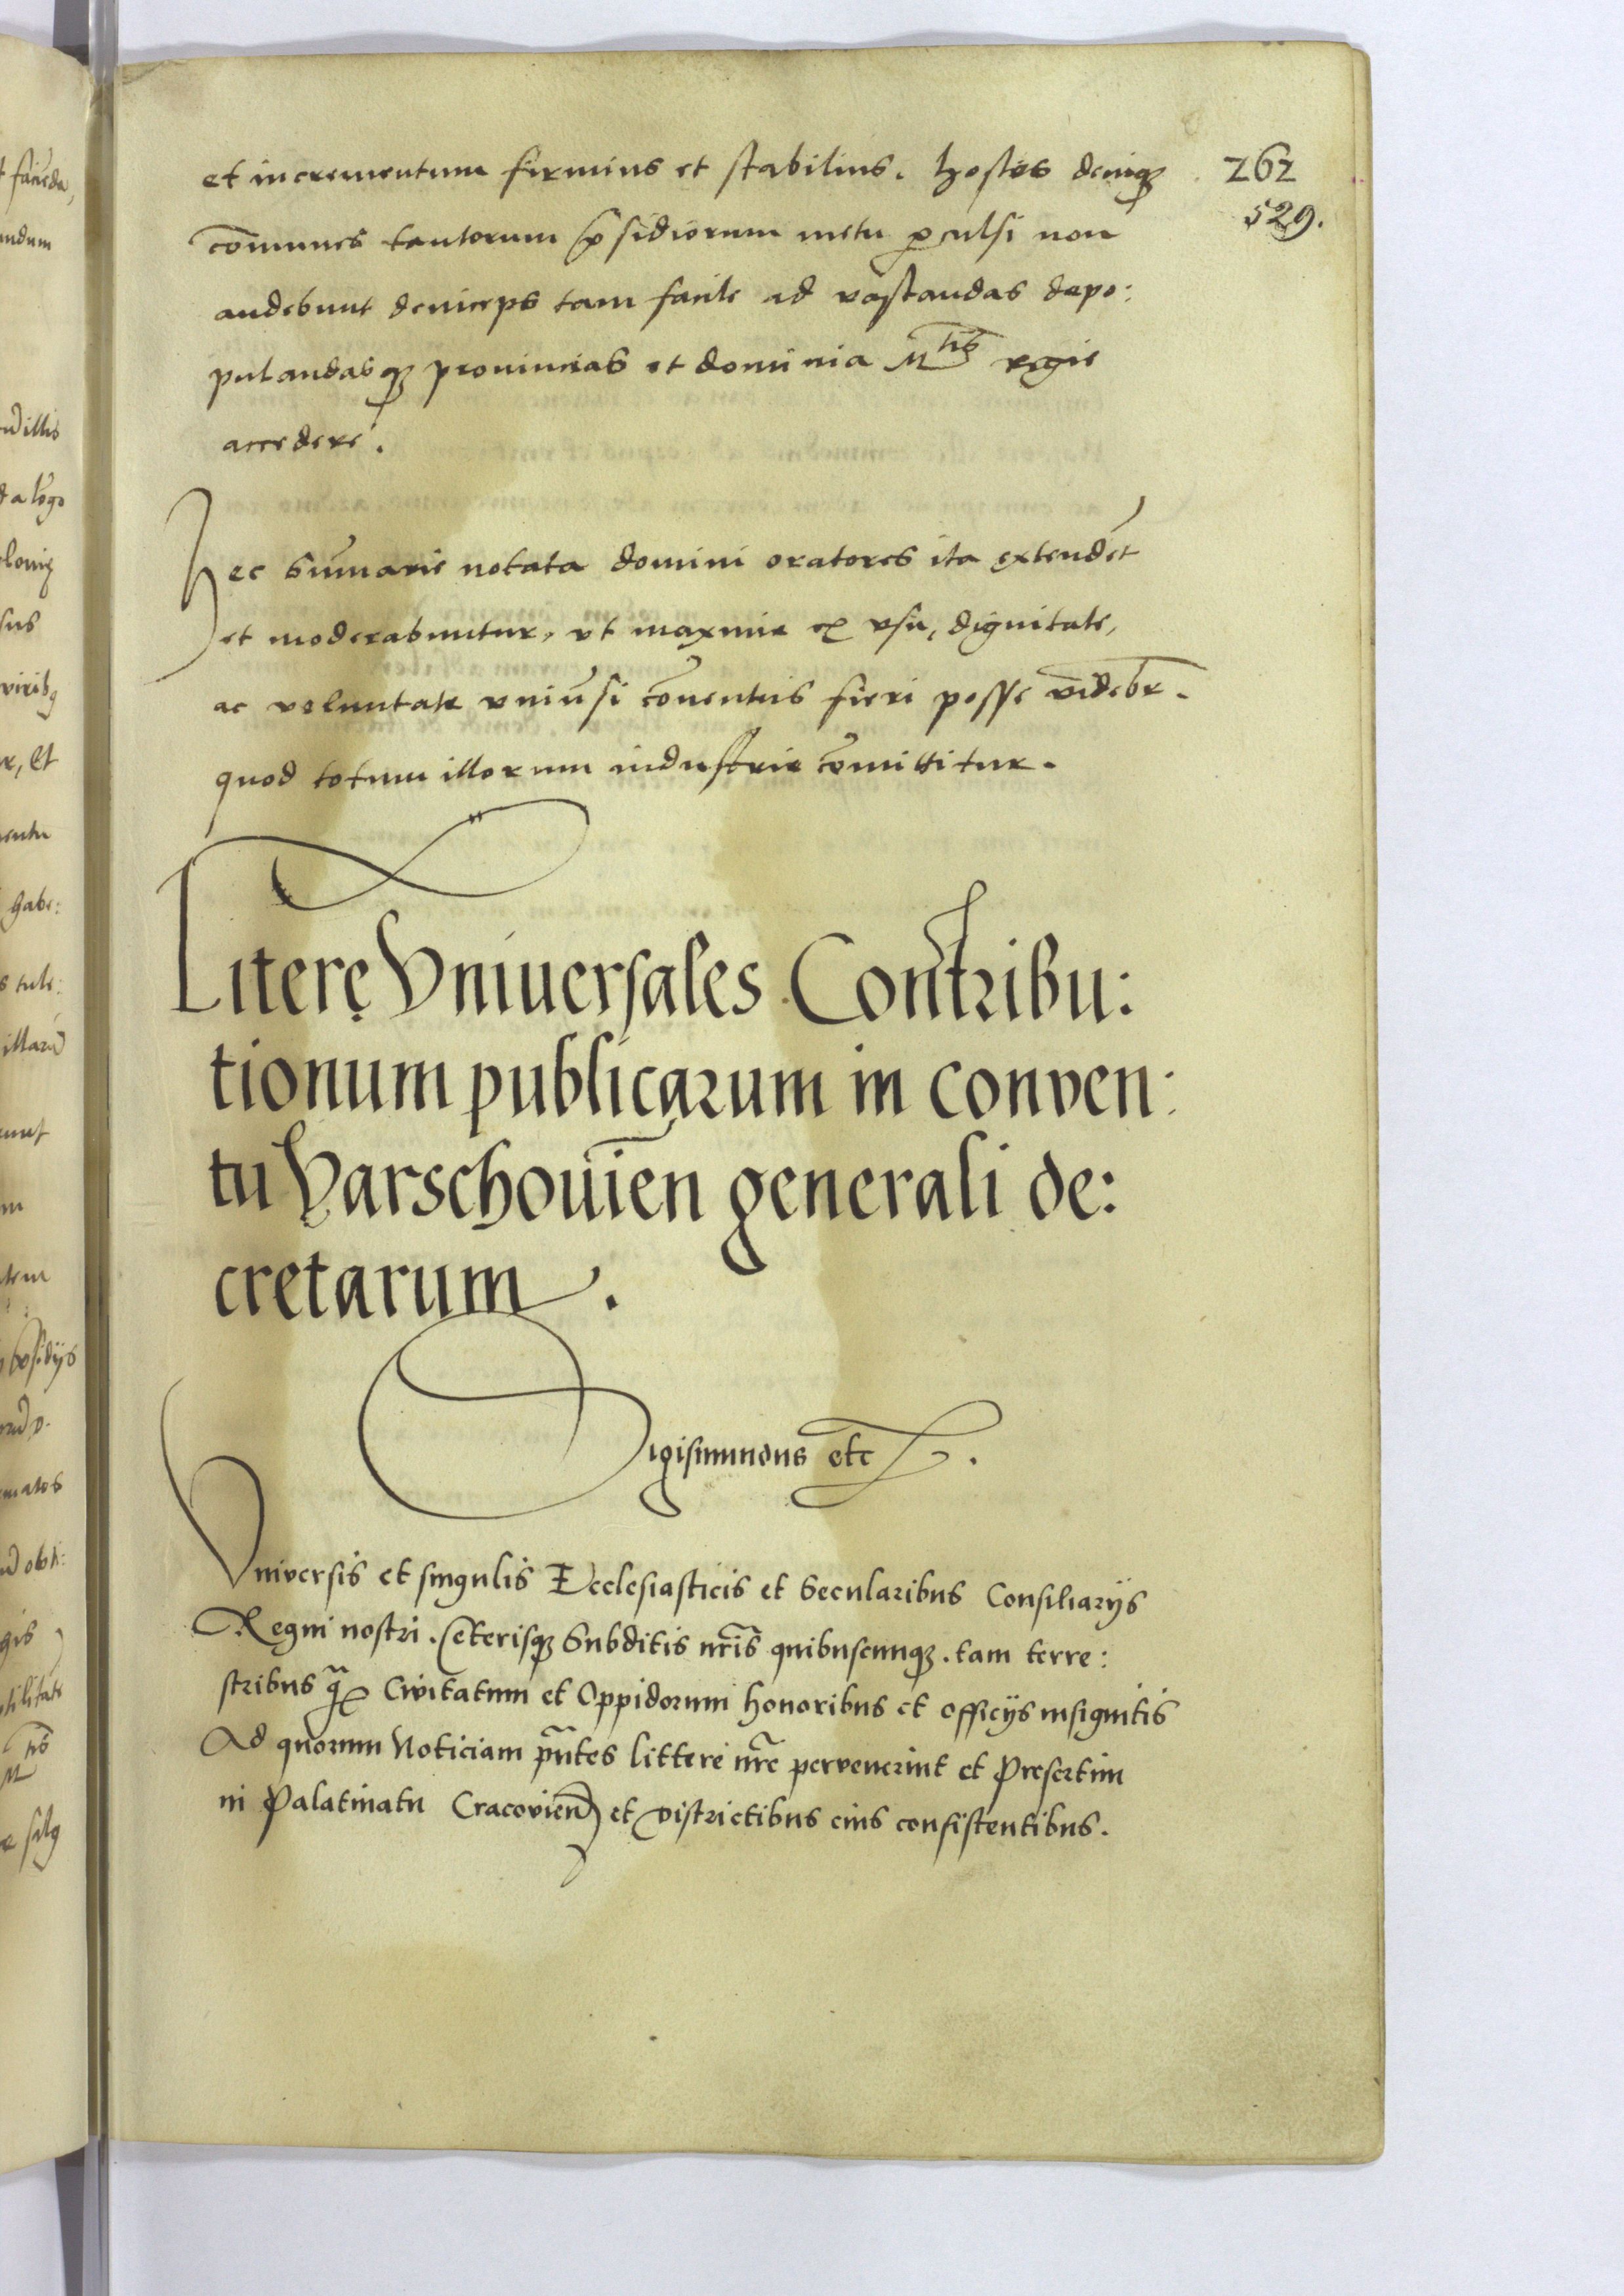 et incrementum firmius et stabilius. hostes deniqꝫ
262
529.
co͂munes tantorum p̄sidiorum metu ꝑculsi non
audebunt deniceps tam facile ad vastandas depo:
pulandasqꝫ prouincias et dominia Mtis regie
accedere.
Hec sum̄arie notata domini oratores ita extendēt
et moderabuntur, vt maxime ex vsu, dignitate,
ac voluntate vniu͂si co͂uentus fieri posse videbr̄.
quod totum illorum industrie co͂mittitur.
Litere̜ Vniuersales Contribu:
tionum publicarum in conven:
tu Varschouien̄ generali de:
cretarum.
Sigismundus etc.
Vniversis et singulis Ecclesiasticis et Secularibus Consiliarijs
Regni nostri. Ceterisqꝫ Subditis nr̄is quibuscunqꝫ. tam terre:
stribus q̄ Civitatum et Oppidorum honoribus et officijs insignitis
Ad quorum Noticiam pn̄tes littere nr̄e pervenerint et Presertim
in Palatinatu Cracovien̄ et Districtibus eius consistentibus.